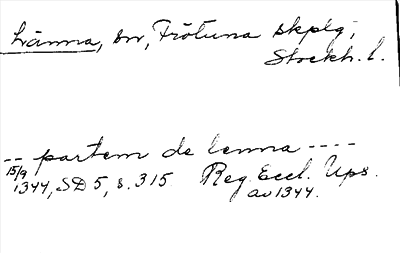 Länna, sn, Frötuna skplg,
Stockh. l.
-- partem de lenna ----
15/9 1344, SD 5, s. 315. Reg. Eccl. Ups.
av 1344.